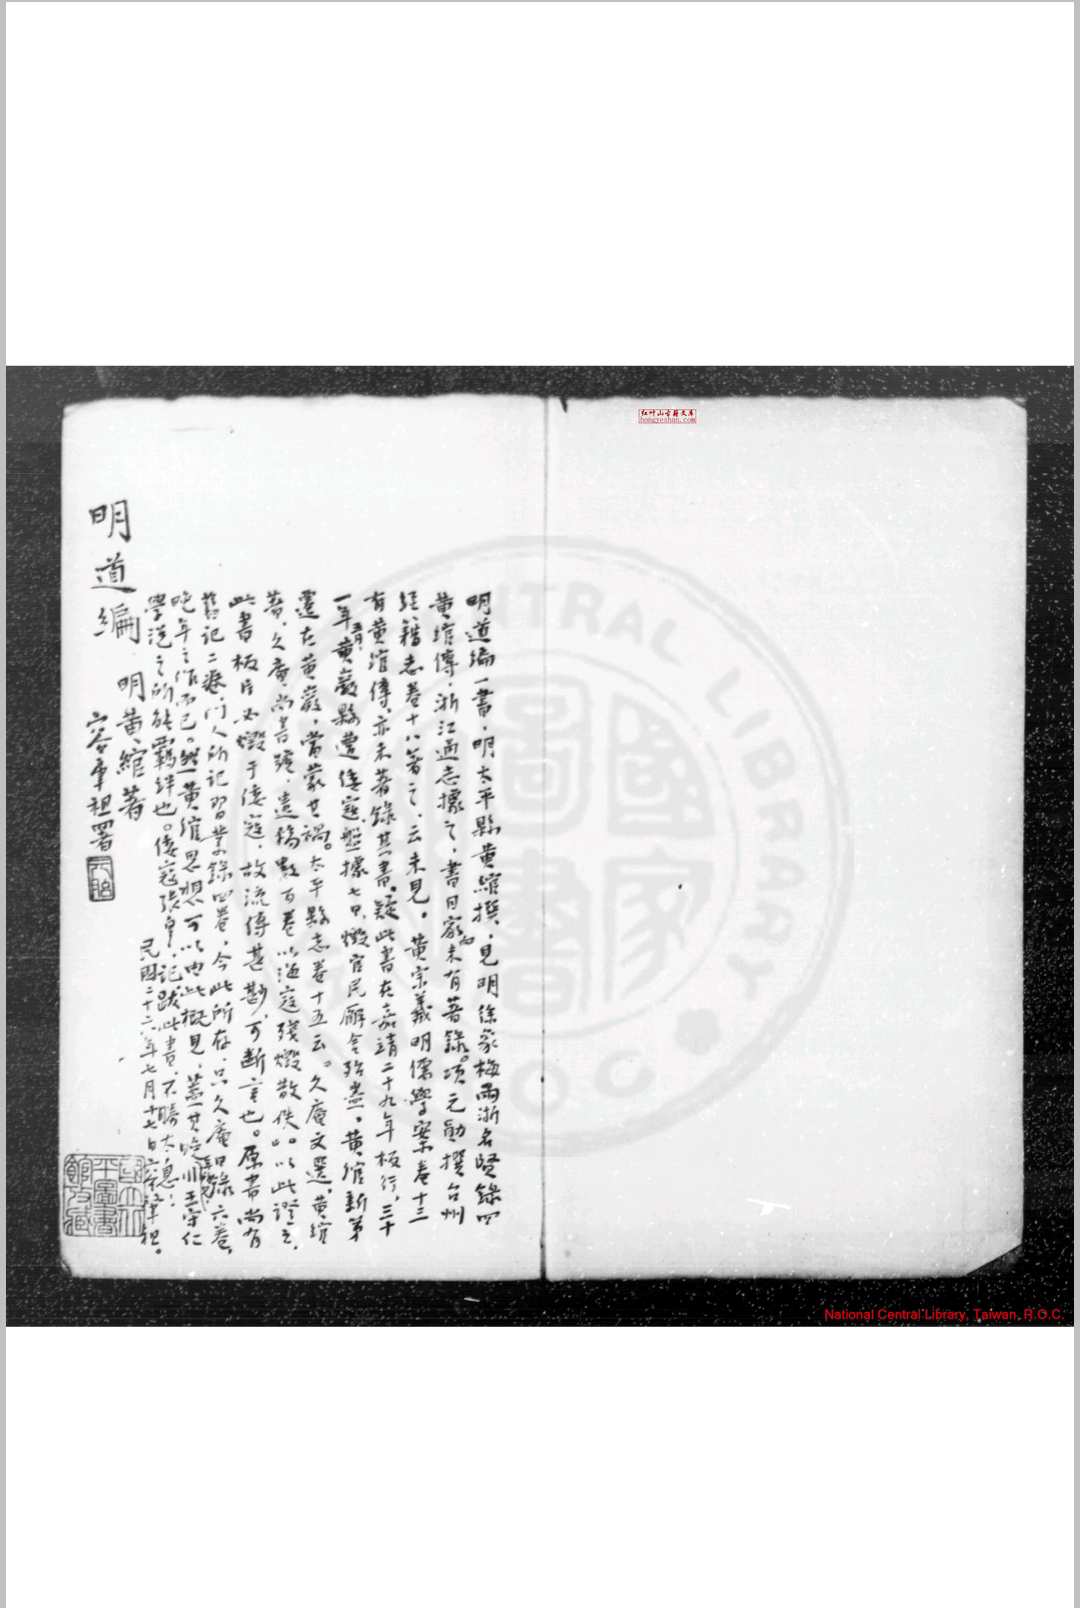 明道編一書，明太平縣黄綰撰，見明徐象梅兩浙名賢錄四
黄綰傳，浙江通志據之，書目家向未有著錄。項元勛撰台州
經籍志卷十八著之，云未見。黄宗羲明儒學案卷十三
有黄綰傳，亦未著錄其書。疑此書在嘉靖二十九年板行，三十
一年五月，黄巖縣遭倭寇盤據七日，燬官民廨舍殆盡。黄綰新第
還在黄巖，當蒙其禍。太平縣志卷十五云。久庵文選，黄綰
著，久庵，尚書號，遺稿數百卷以海寇殘燬散佚。以此證之，
此書板片必燬于倭寇，故流傳甚尠，可斷言也。原書尚有
舊記二卷，門人所記習業錄四卷，今此所存，只久庵日錄六卷，
晚年之作而已。然黄綰思想可以由此概見，蓋其晚年 非王守仁
學說之所能羈絆也。倭寇張 ，記跋此書，不勝太息！
民國二十六年七月十七日容肇祖。
明道編 明黄綰著
容肇祖署
元胎
國立北
平圖書
館收藏
红叶山古籍文库
hongyeshan.com
NATIONAL CENTRAL LIBRARY
R.O.C.
國家圖書
National Central Library, Taiwan, R.O.C.